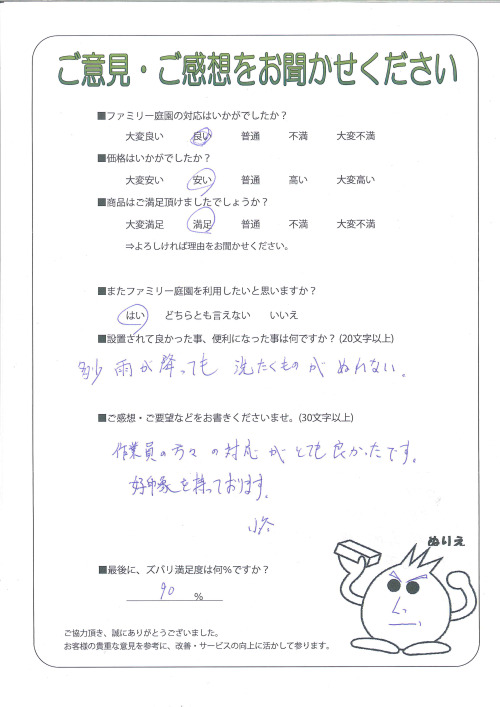 ご意見・ご感想をお聞かせください
■ファミリー庭園の対応はいかがでしたか？
大変良い 良い 普通 不満 大変不満
■価格はいかがでしたか？
大変安い 安い 普通 高い 大変高い
■商品はご満足頂けましたでしょうか？
大変満足 満足 普通 不満 大変不満
⇒よろしければ理由をお聞かせください。
■またファミリー庭園を利用したいと思いますか？
はい どちらとも言えない いいえ
■設置されて良かった事、便利になった事は何ですか？(20文字以上)
雨が降っても 洗たくものが ぬれない。
■ご感想・ご要望などをお書きくださいませ。(30文字以上)
作業員の方々の対応がとても良かったです。
好印象を持っております。
ぬりえ
■最後に、ズバリ満足度は何%ですか？
90 %
ご協力頂き、誠にありがとうございました。
お客様の貴重な意見を参考に、改善・サービスの向上に活かして参ります。